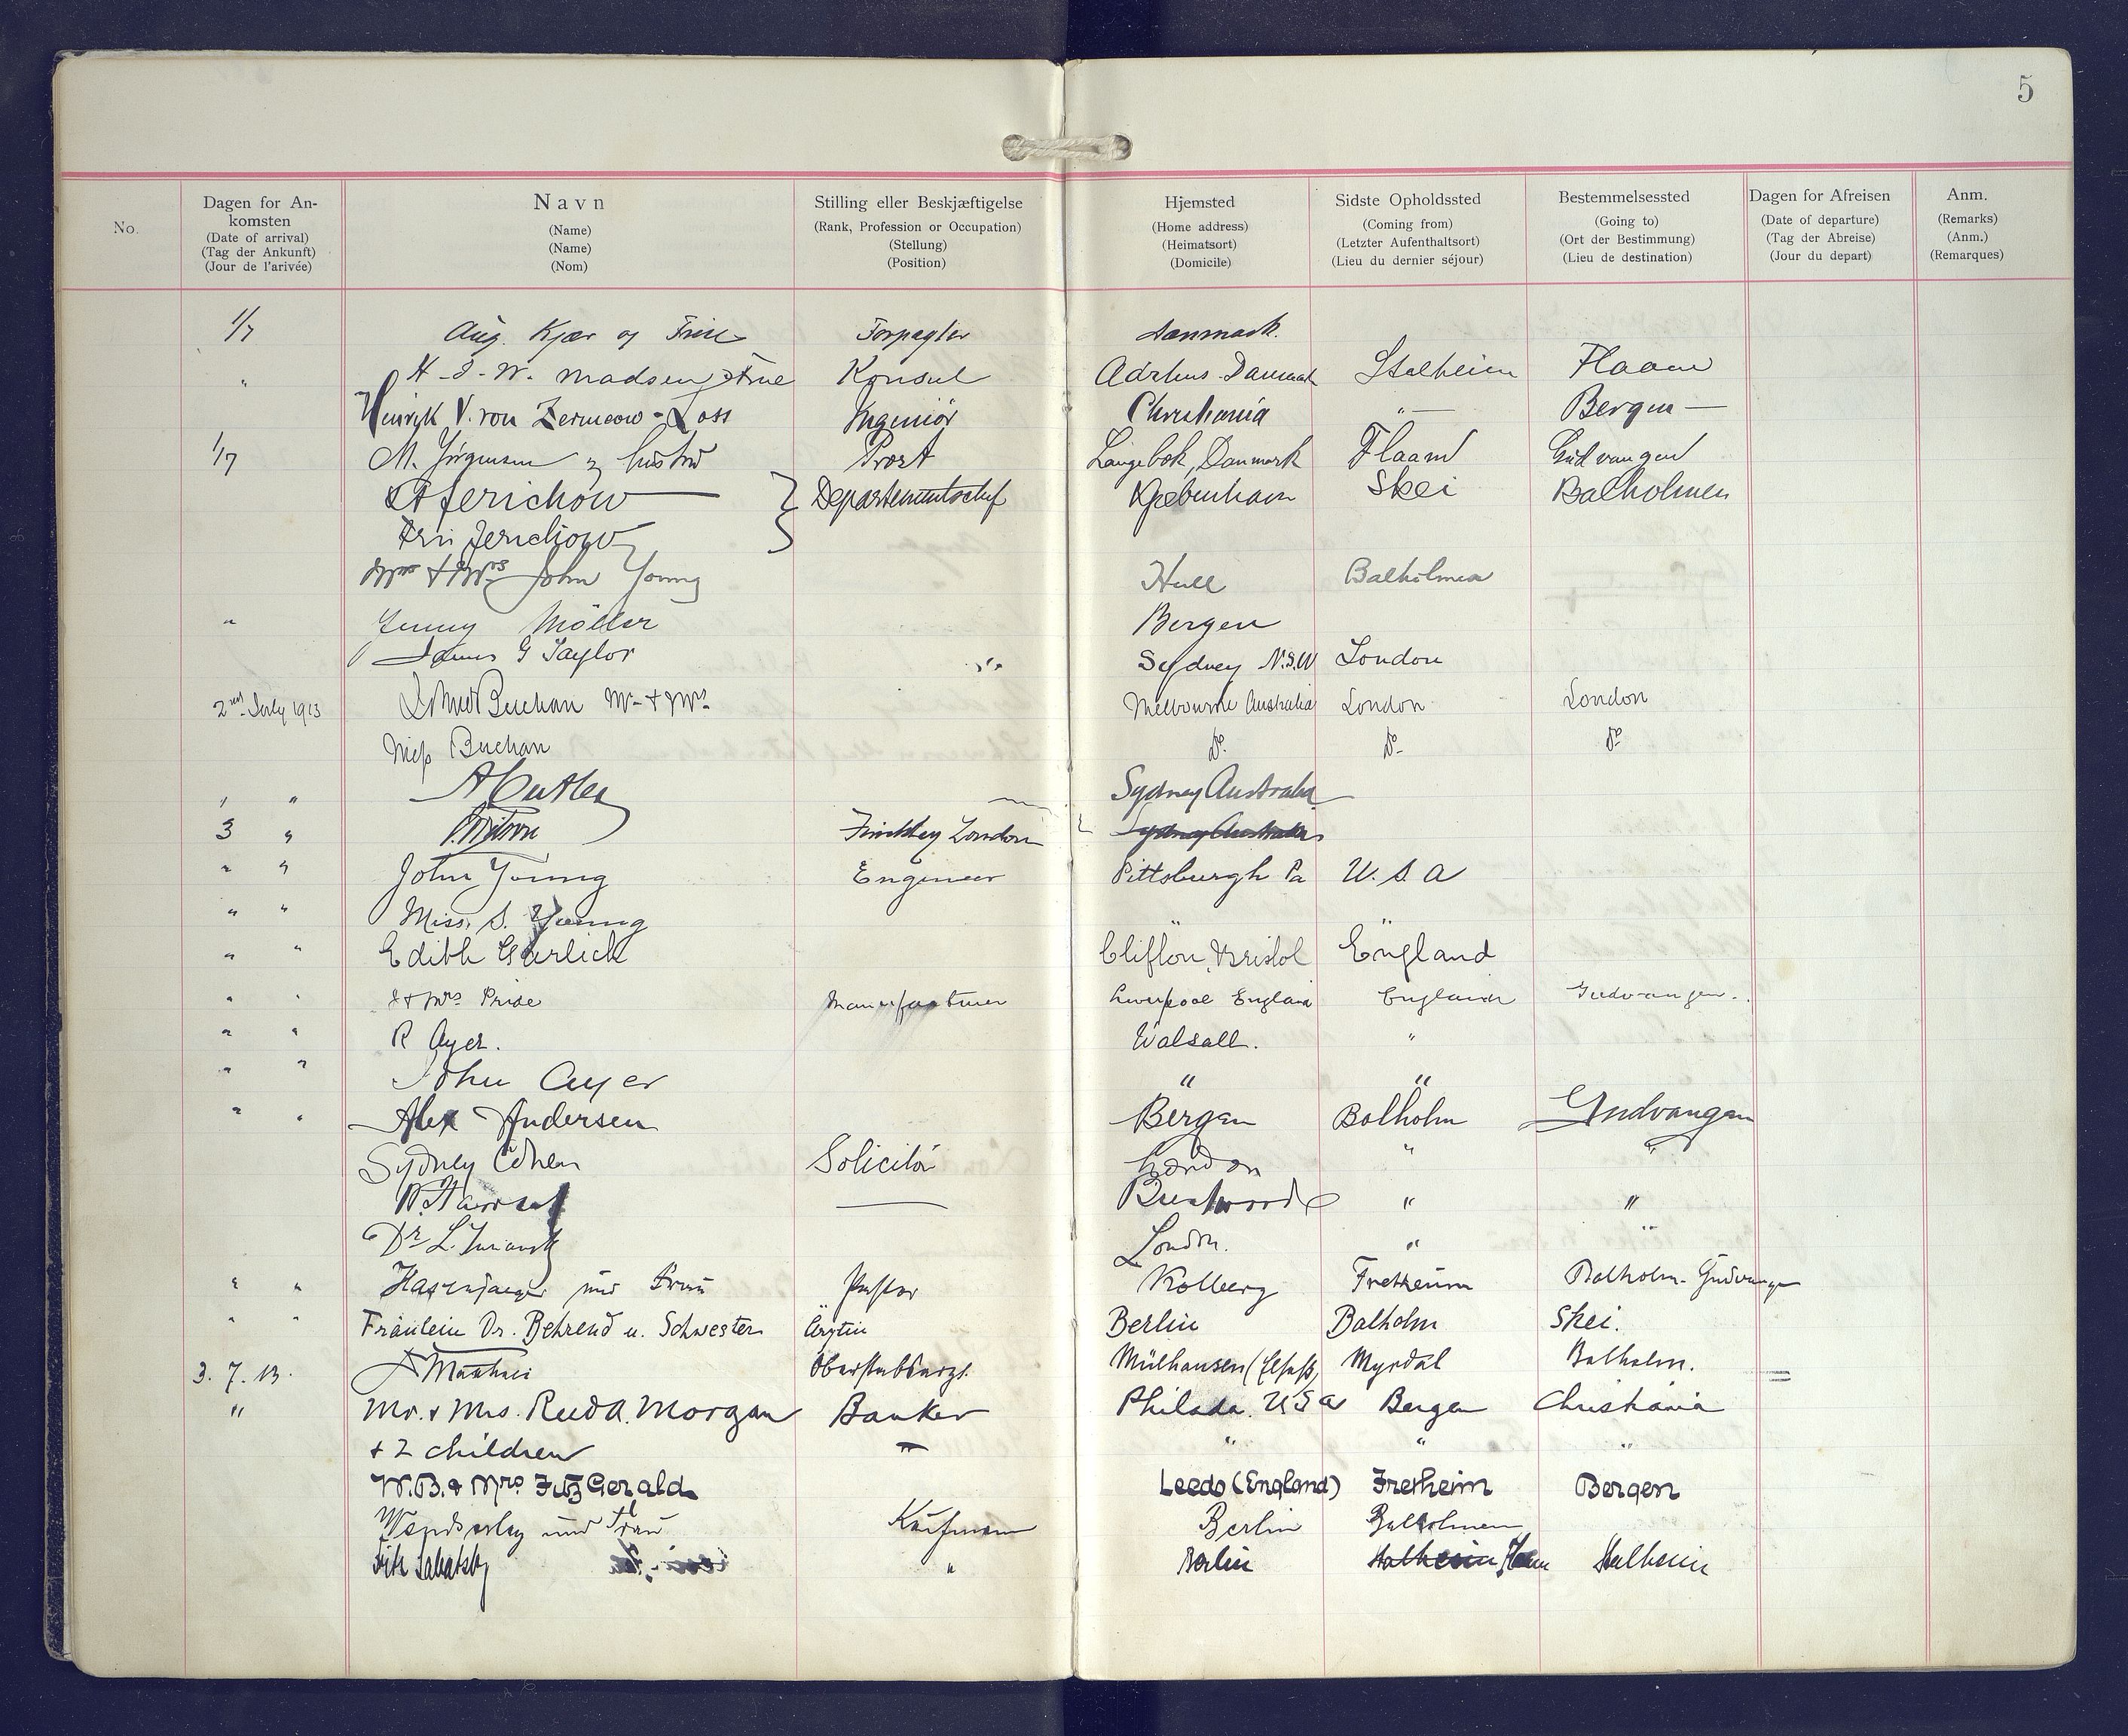 5
No.
Dagen for Ankomsten
(Date of arrival)
(Tag der Ankunft)
(Jour de l'arivée)
Navn
(Name)
(Name)
(Nom)
Stilling eller Beskjæftigelse
(Rank, Profession or Occupation)
(Stellung)
(Position)
Hjemsted
(Home address)
(Heimatsort)
(Domicile)
Sidste Opholdssted
(Coming from)
(Letzter Aufenthaltsort)
(Lieu du dernier séjour)
Bestemmelsessted
(Going to)
(Ort der Bestimmung)
(Lieu de destination)
Dagen for Afreisen
(Date of departure)
(Tag der Abreise)
(Jour du depart)
Anm.
(Remarks)
(Anm.)
(Remarques)
1/7 Aug. Kjær og Frue Forpagter Danmark.
" Madsen Frue Konsul Danmark Stalheim Flaam
V. von Ingeniör Christiania "— Bergen —
1/7 M. Jörgensen og hustru Prost Danmark Flaam Gudvangen
Jerichow Departementschef Kjøbenhavn Skei Balholmen
Jerichow
& Mrs John Young Hull Balholmen
" Jenny Möller Bergen
James G Taylor " Sydney N.S.W London
2nd July 1913 Buchan Mr & Mrs Melbourne Australia London London
Miss Buchan Do. Do. Do
" " Sydney Australia
3 " Finchley London Sydney Australia
" " John Young Engineer Pittsburgh Pa U.S.A
" " Miss. S. Young "
" " Edith Garlick Clifton, Bristol England
" " & Mrs Pride Manufacturer Liverpool England England Gudvangen.
" " R Ayer. Walsall. "
" " John Ayer " "
" " Alex Andersen Bergen Balholm Gudvangen
Sydney Cohen Solicitor London " "
Brentwood " "
Dr L. London. "
" " Hasenjaeger und Frau Pastor Kolberg Fretheim Balholm-Gudvangen
" " Fräulein Dr. Behrend u. Schwester Ärztin Berlin Balholm Skei.
3.7.13. Matthaei Oberstabsarzt. Mülhausen (Elsaß) Myrdal Balholm.
" Mr. & Mrs. Reed A. Morgan Banker Philada. USA Bergen Christiania
+ 2 children " " " "
W.B. & Mrs. FitzGerald Leeds (England) Fretheim Bergen
und Frau Kaufmann Berlin Balholmen
" Berlin Stalheim Flaam Stalheim